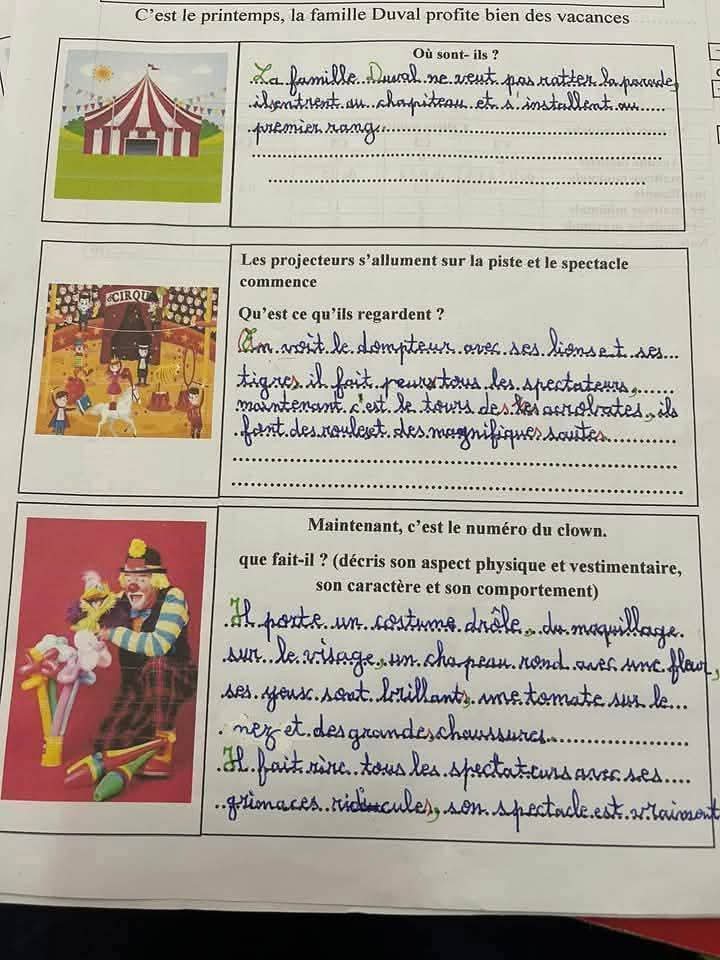 C'est le printemps, la famille Duval profite bien des vacances
Où sont- ils ?
La famille Duval ne veut pas ratter la parade,
ils entrent au chapiteau et s'installent au
premier rang
Les projecteurs s'allument sur la piste et le spectacle
commence
CIRQU
Qu'est ce qu'ils regardent ?
On voit le dompteur avec ses lions et ses
tigres, il fait peur à tous les spectateurs,
maintenant c'est le tours des acrobates, ils
font des roules et des magnifiques sautes
Maintenant, c'est le numéro du clown.
que fait-il ? (décris son aspect physique et vestimentaire,
son caractère et son comportement)
Il porte un costume drôle, du maquillage
sur le visage, un chapeau rond avec une fleur,
ses yeux sont brillants, une tomate sur le
nez et des grandes chaussures.
Il fait rire tous les spectateurs avec ses
grimaces ridicules, son spectacle est vraiment